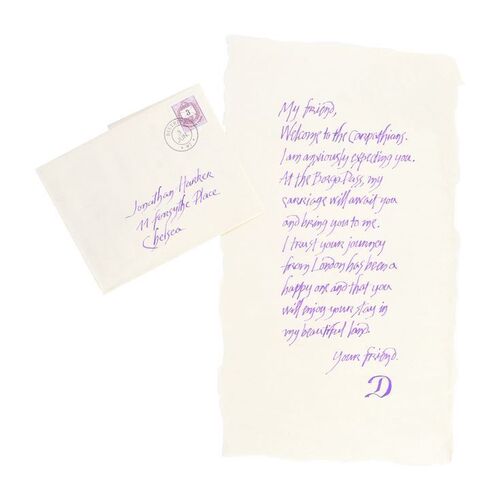 Jonathan Harker
11 Forsythe Place
Chelsea
3
My friend,
Welcome to the Carpathians.
I am anxiously expecting you.
At the Borgo Pass, my
carriage will await you
and bring you to me.
I trust your journey
from London has been a
happy one and that you
will enjoy your stay in
my beautiful land.
Your friend.
D